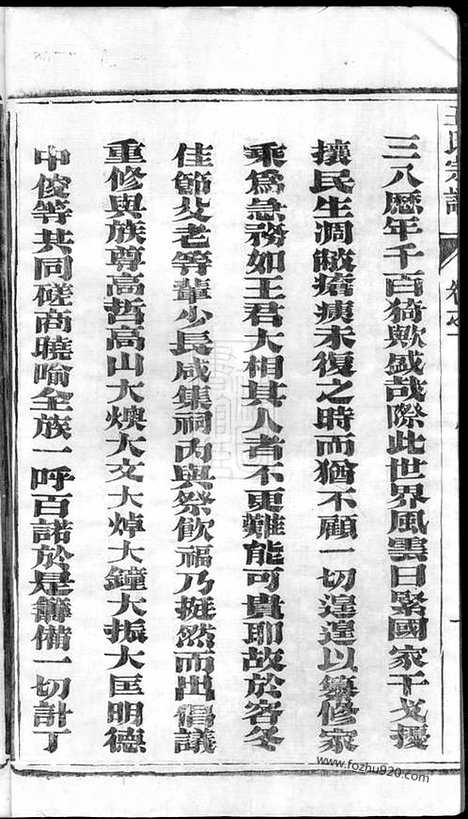 王氏宗譜
卷之一
三八歷年千百猗歟盛哉際此世界風雲日緊國家干戈擾
攘民生凋敝瘡痍未復之時而猶不顧一切遑遑以纂修家
乘爲急務如王君大相其人者不更難能可貴耶故於客冬
佳節父老等輩少長咸集祠內與祭飲福乃挺然而出倡議
重修與族尊高哲高山大煥大文大焯大鐘大振大匡明德
中俊等共同磋商曉喻全族一呼百諾於是籌備一切計丁
www.fozhu920.com